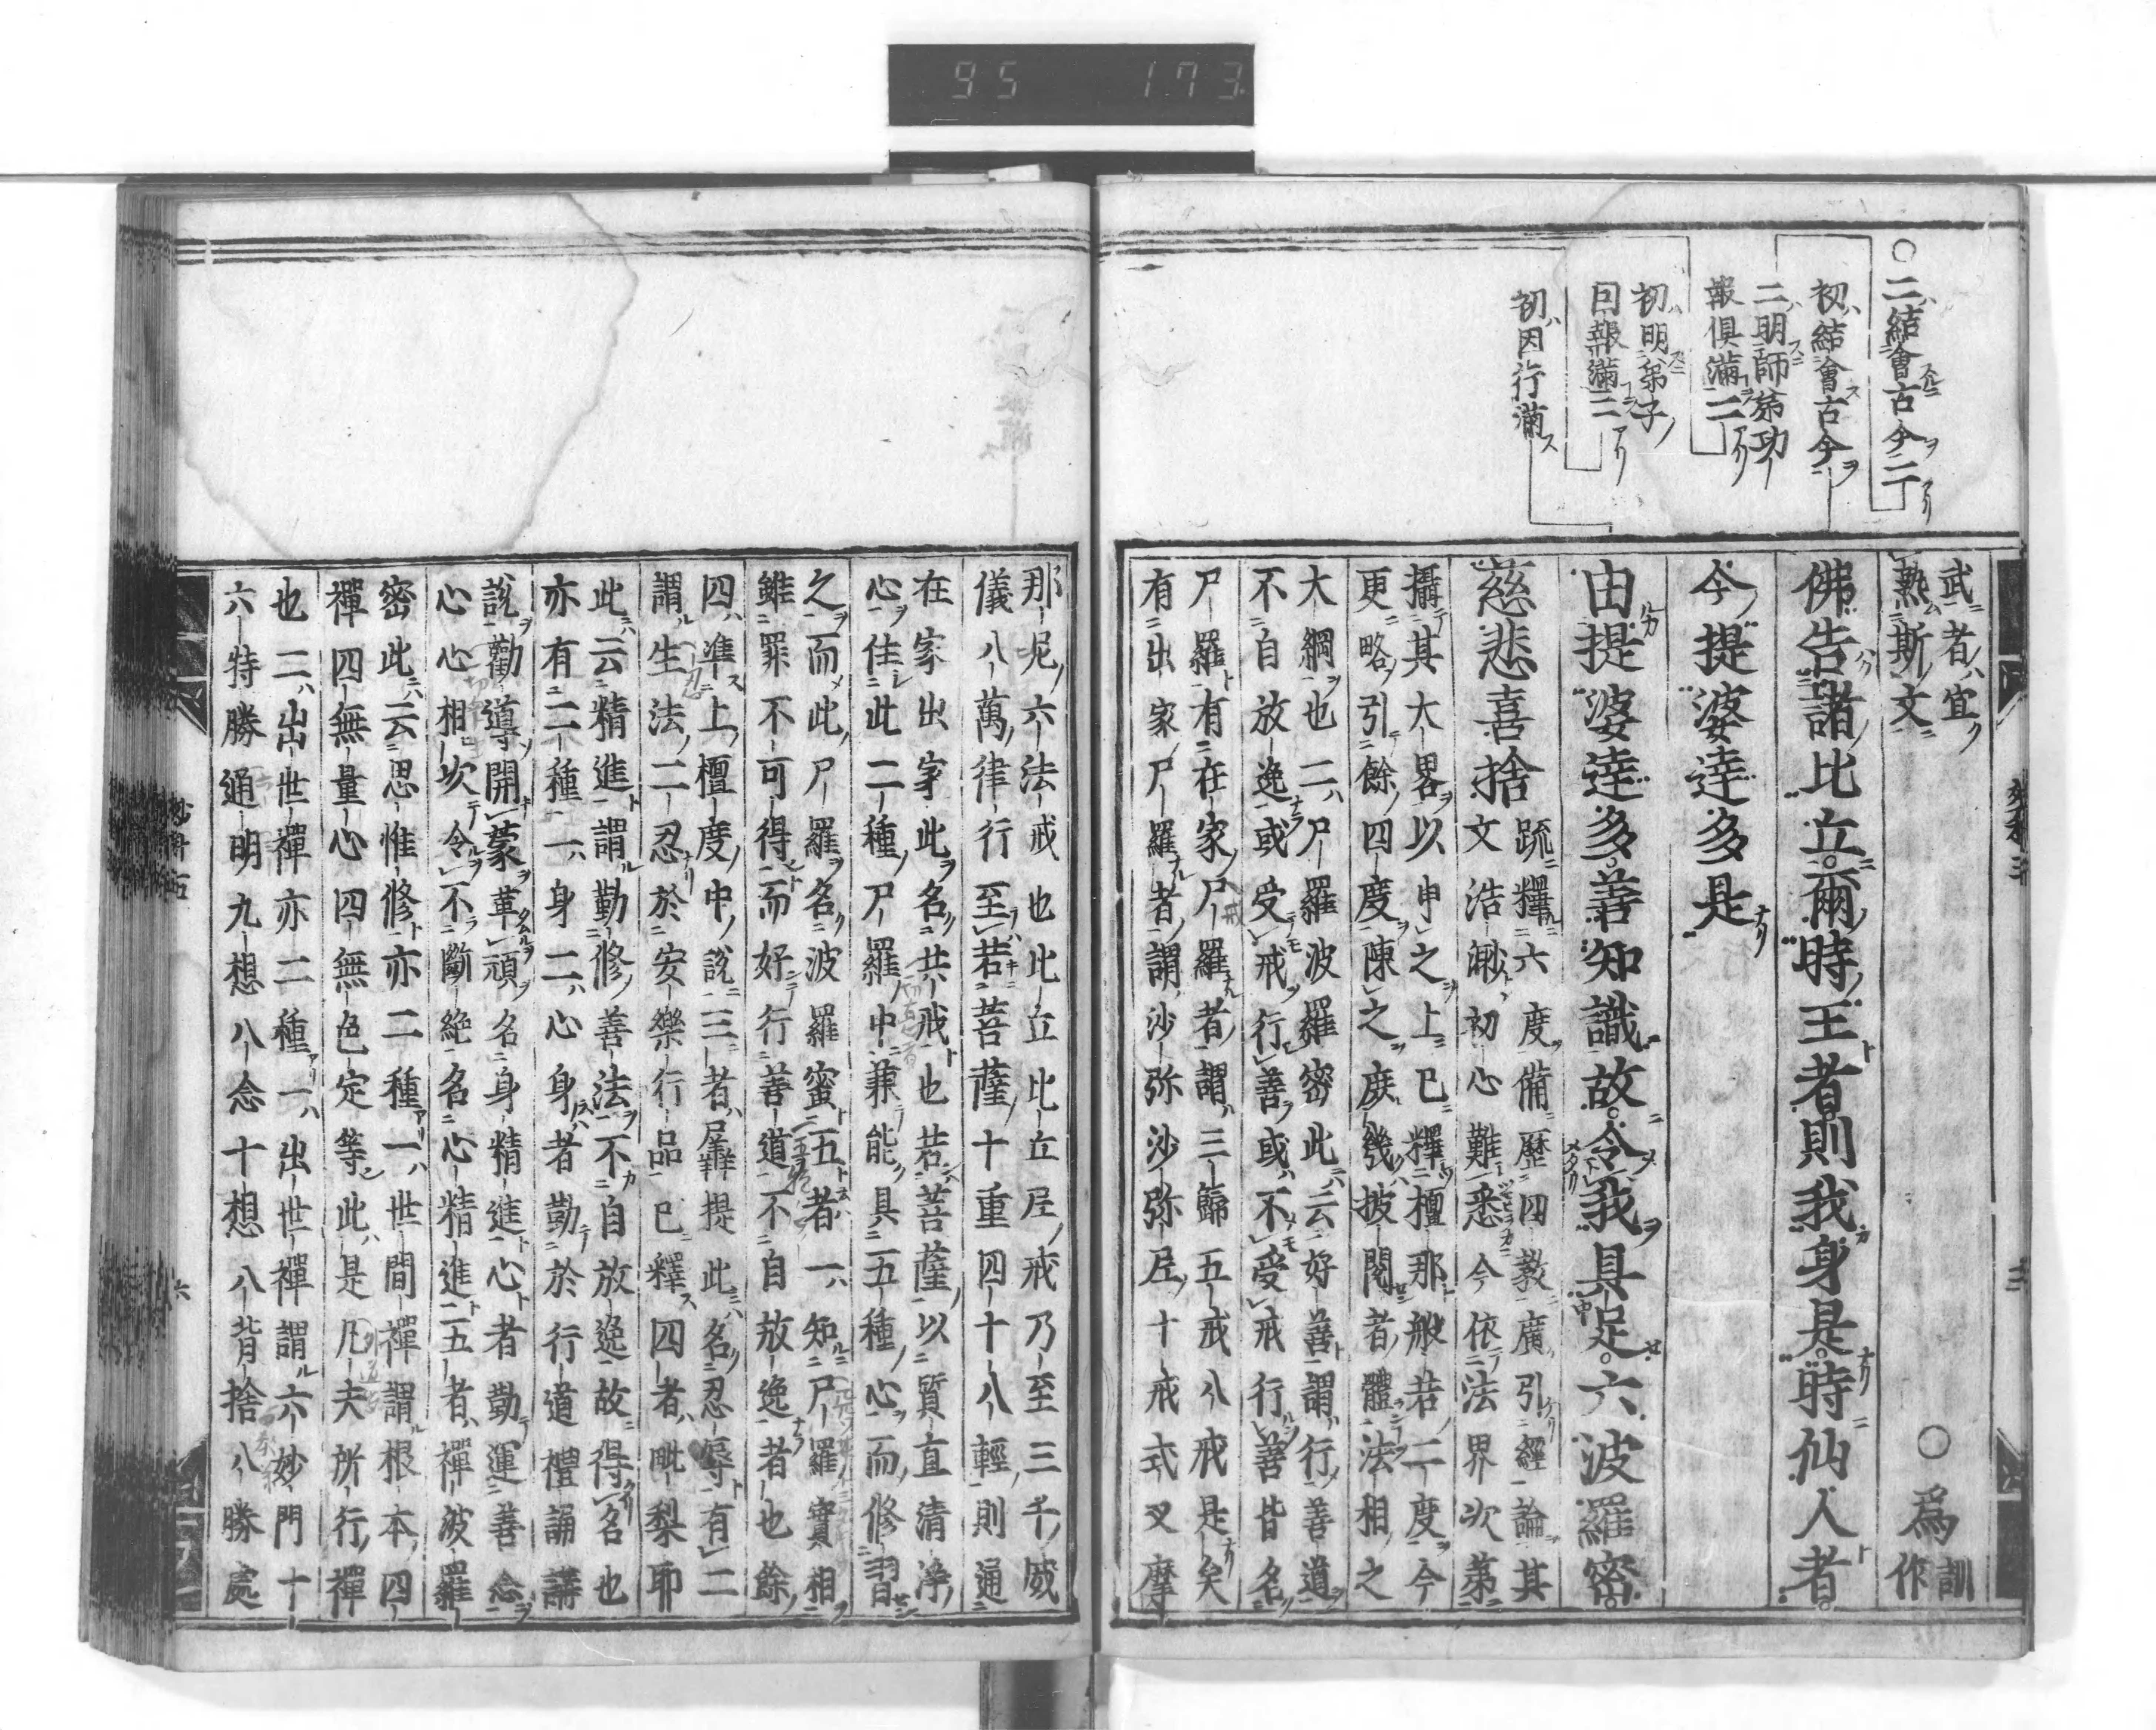 95 173
○二結會古今二
初結會古今
二明師弟功
報俱滿二
初明弟子
因報滿二
初因行滿
武者宜
熟斯文 ○爲 訓
作
佛告諸比丘爾時王者則我身是時仙人者
今提婆達多是
由提婆達多善知識故令我具足六波羅密
慈悲喜捨
䟽釋六度備歷四教廣引經論其
文浩渺初心難悉今依法界次第
攝其大畧以申之上已釋檀那般若二度今
更略引餘四度陳之庶幾披閱者體法相之
大綱也二尸羅波羅密此云好善謂行善道
不自放逸或受戒行善或不受戒行善皆名
尸羅有在家尸羅者謂三歸五戒八戒是矣
有出家尸羅者謂沙弥沙弥尼十戒式叉摩
那尼六法戒也比丘比丘尼戒乃至三千威
儀八萬律行至若菩薩十重四十八輕則通
在家出家此名共戒也若菩薩以質直清淨
心住此二種尸羅中兼能具五種心而修習
之而此尸羅名波羅蜜五者一知尸羅實相
雖罪不可得而好行善道不自放逸者也餘
四準上檀度中說三者羼提此名忍辱有二
謂生法二忍於安樂行品已釋四者毗梨耶
此云精進謂勤修善法不自放逸故得名也
亦有二種一身二心身者勤於行道禮誦講
說勸導開蒙革頑名身精進心者勤運善念
心心相次令不斷絕名心精進五者禪波羅
密此云思惟修亦二種一世間禪謂根本四
禪四無量心四無色定等此是凡夫所行禪
也二出世禪亦二種一出世禪謂六妙門十
六特勝通明九想八念十想八背捨八勝處